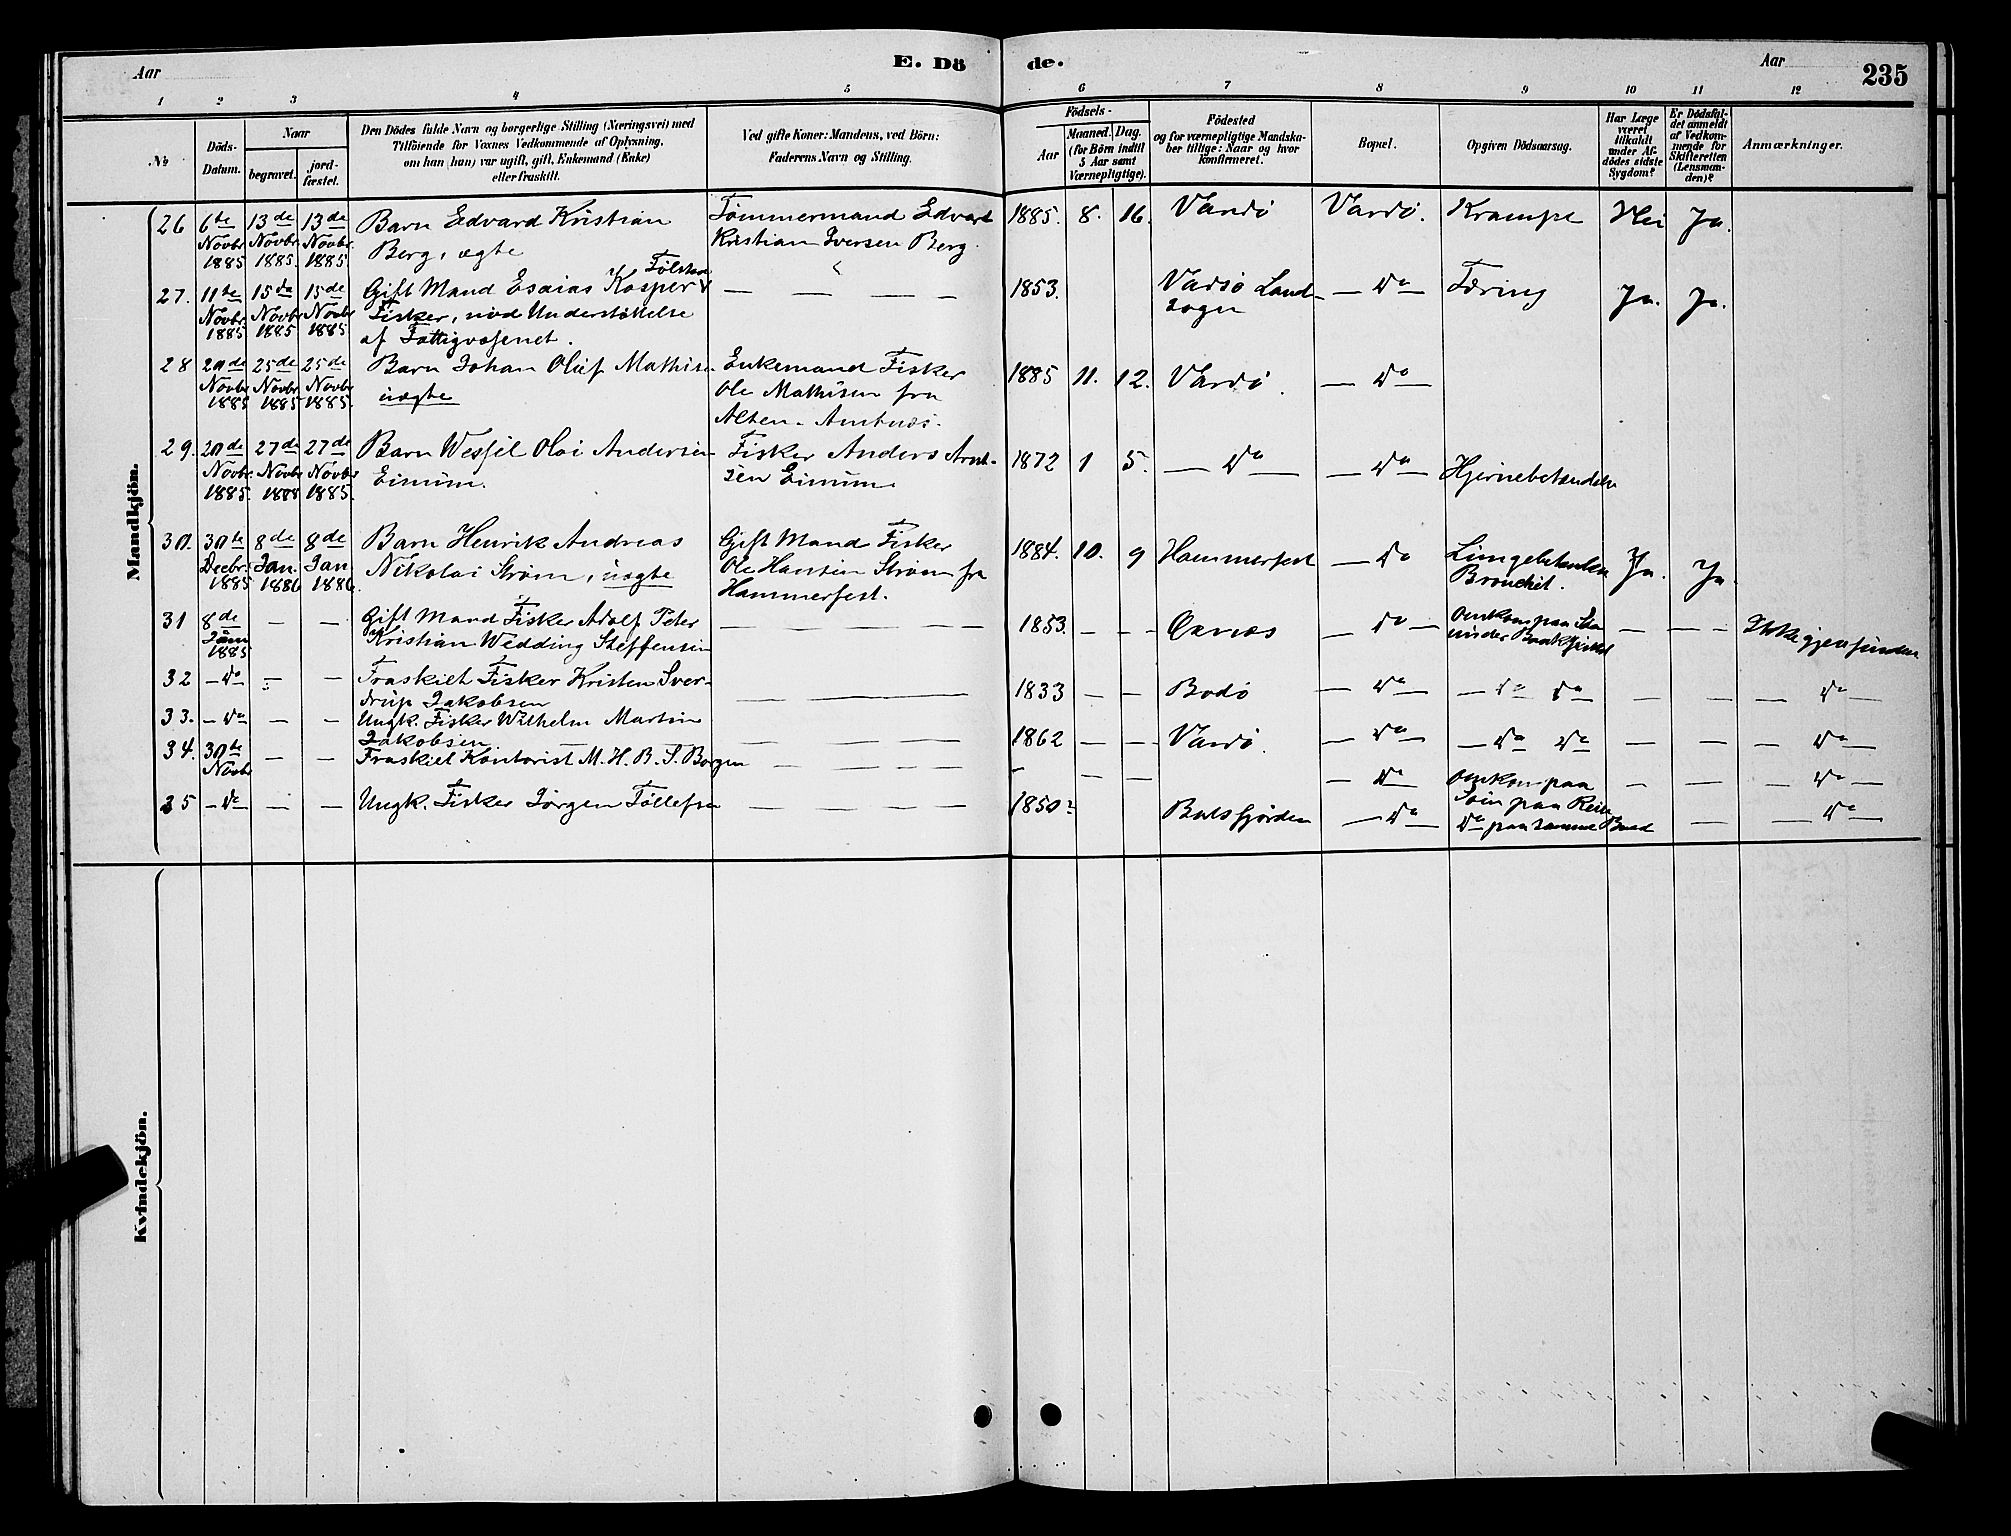 Aar
E. Dö
de.
Aar
235
1 2 3 4 5 6 7 8 9 10 11 12
№
Döds-
Datum.
Naar
begravet.
jord-
fæstet.
Den Dödes fulde Navn og borgerlige Stilling (Næringsvei) med
Tilföiende for Voxnes Vedkommende af Oplysning,
om han (hun) var ugift, gift, Enkemand (Enke)
eller fraskilt.
Ved gifte Koner: Mandens, ved Börn:
Faderens Navn og Stilling.
Födsels-
Aar
Maaned. Dag.
(for Börn indtil
5 Aar samt
Værnepligtige).
Födested
og for værnepligtige Mandska-
ber tillige: Naar og hvor
konfirmeret.
Bopæl.
Opgiven Dödsaarsag.
Har Læge
været
tilkaldt
under Af-
dödes sidste
Sygdom?
Er Dödsfal-
det anmeldt
af Vedkom-
mende for
Skifteretten
(Lensman-
den)?
Anmærkninger.
Mandkjön.
26 6te Novbr. 1885 13de Novbr. 1885. 13de Novbr. 1885.
Barn Edvard Kristian
Berg, ægte
Tømmermand Edvard
Kristian Iversen Berg.
1885. 8. 16. Vardö Vardö. Krampe Nei Ja.
27. 11te Novbr. 1885 15de Novbr. 1885 15de Novbr. 1885
Gift Mand Esaias Kasper
Fisker, nød Understøttelse
af Fattigvæsenet.
— — — —
1853. Vadsö Land-
sogn
— Do — Tæring Ja. Ja.
28 20de Novbr. 1885 25de Novbr. 1885 25de Novbr. 1885.
Barn Johan Oluf Mathisen
uægte
Enkemand Fisker
Ole Mathisen fra
Alten.
1885 11. 12. Vardö. — Do
29. 20de Novbr. 1885. 27de Novbr. 27de Novbr. 1885.
Barn Wessel Olai Andersen
Einum.
Fisker Anders Arnt-
sen Einum
1872 1 5. — Do — — Do — Hjernebetændelse
30. 30te Decbr. 1885 8de Jan. 1886 8de Jan. 1886.
Barn Henrik Andreas
Nikolai Strøm, uægte
Gift Mand Fisker
Ole Hansen Strøm fra
Hammerfest.
1884. 10. 9 Hammerfest — Do Lungebetændelse
Bronchit. Ja. Ja.
31 8de 1885 — —
Gift Mand Fisker Adolf Peter
Kristian Wedding Steffensen
1853. — — — Do — omkom paa
under — — — Ikke gjenfunden
32 — Do — — —
Fraskilt Fisker Kristen Sver-
drup Jakobsen
1833 — — Bodö — Do — — Do Do — — — — Do —
33. — Do — — —
Ungk. Fisker Wilhelm Martin
Jakobsen
1862 — — Vardö. — Do — — Do Do — — — — Do —
34. 30te Novbr — —
Fraskilt Kontorist M. H. B. S. Borgen
— — — — — Do — omkom paa
paa Reise — — — Do —
35 — Do — — —
Ungk. Fisker Jørgen Tollefsen
1850? Balsfjorden — Do — Do paa samme Baad — — Do —
Kvindekjön.